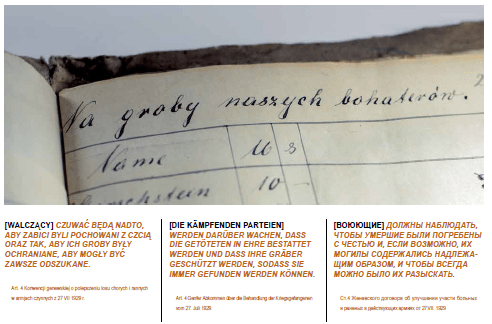 Na groby naszych bohaterów. 2
Name M s
10 —
[WALCZĄCY] CZUWAĆ BĘDĄ NADTO,
ABY ZABICI BYLI POCHOWANI Z CZCIĄ
ORAZ TAK, ABY ICH GROBY BYŁY
OCHRANIANE, ABY MOGŁY BYĆ
ZAWSZE ODSZUKANE.
Art. 4 Konwencji genewskiej o polepszeniu losu chorych i rannych
w armjach czynnych z 27 VII 1929 r.
[DIE KÄMPFENDEN PARTEIEN]
WERDEN DARÜBER WACHEN, DASS
DIE GETÖTETEN IN EHRE BESTATTET
WERDEN UND DASS IHRE GRÄBER
GESCHÜTZT WERDEN, SODASS SIE
IMMER GEFUNDEN WERDEN KÖNNEN.
Art. 4 Genfer Abkommen über die Behandlung der Kriegsgefangenen
vom 27. Juli 1929
[ВОЮЮЩИЕ] ДОЛЖНЫ НАБЛЮДАТЬ,
ЧТОБЫ УМЕРШИЕ БЫЛИ ПОГРЕБЕНЫ
С ЧЕСТЬЮ И, ЕСЛИ ВОЗМОЖНО, ИХ
МОГИЛЫ СОДЕРЖАЛИСЬ НАДЛЕЖА-
ЩИМ ОБРАЗОМ, И ЧТОБЫ ВСЕГДА
МОЖНО БЫЛО ИХ РАЗЫСКАТЬ.
Ст.4 Женевского договора об улучшении участи больных
и раненых в действующих армиях от 27 VII 1929